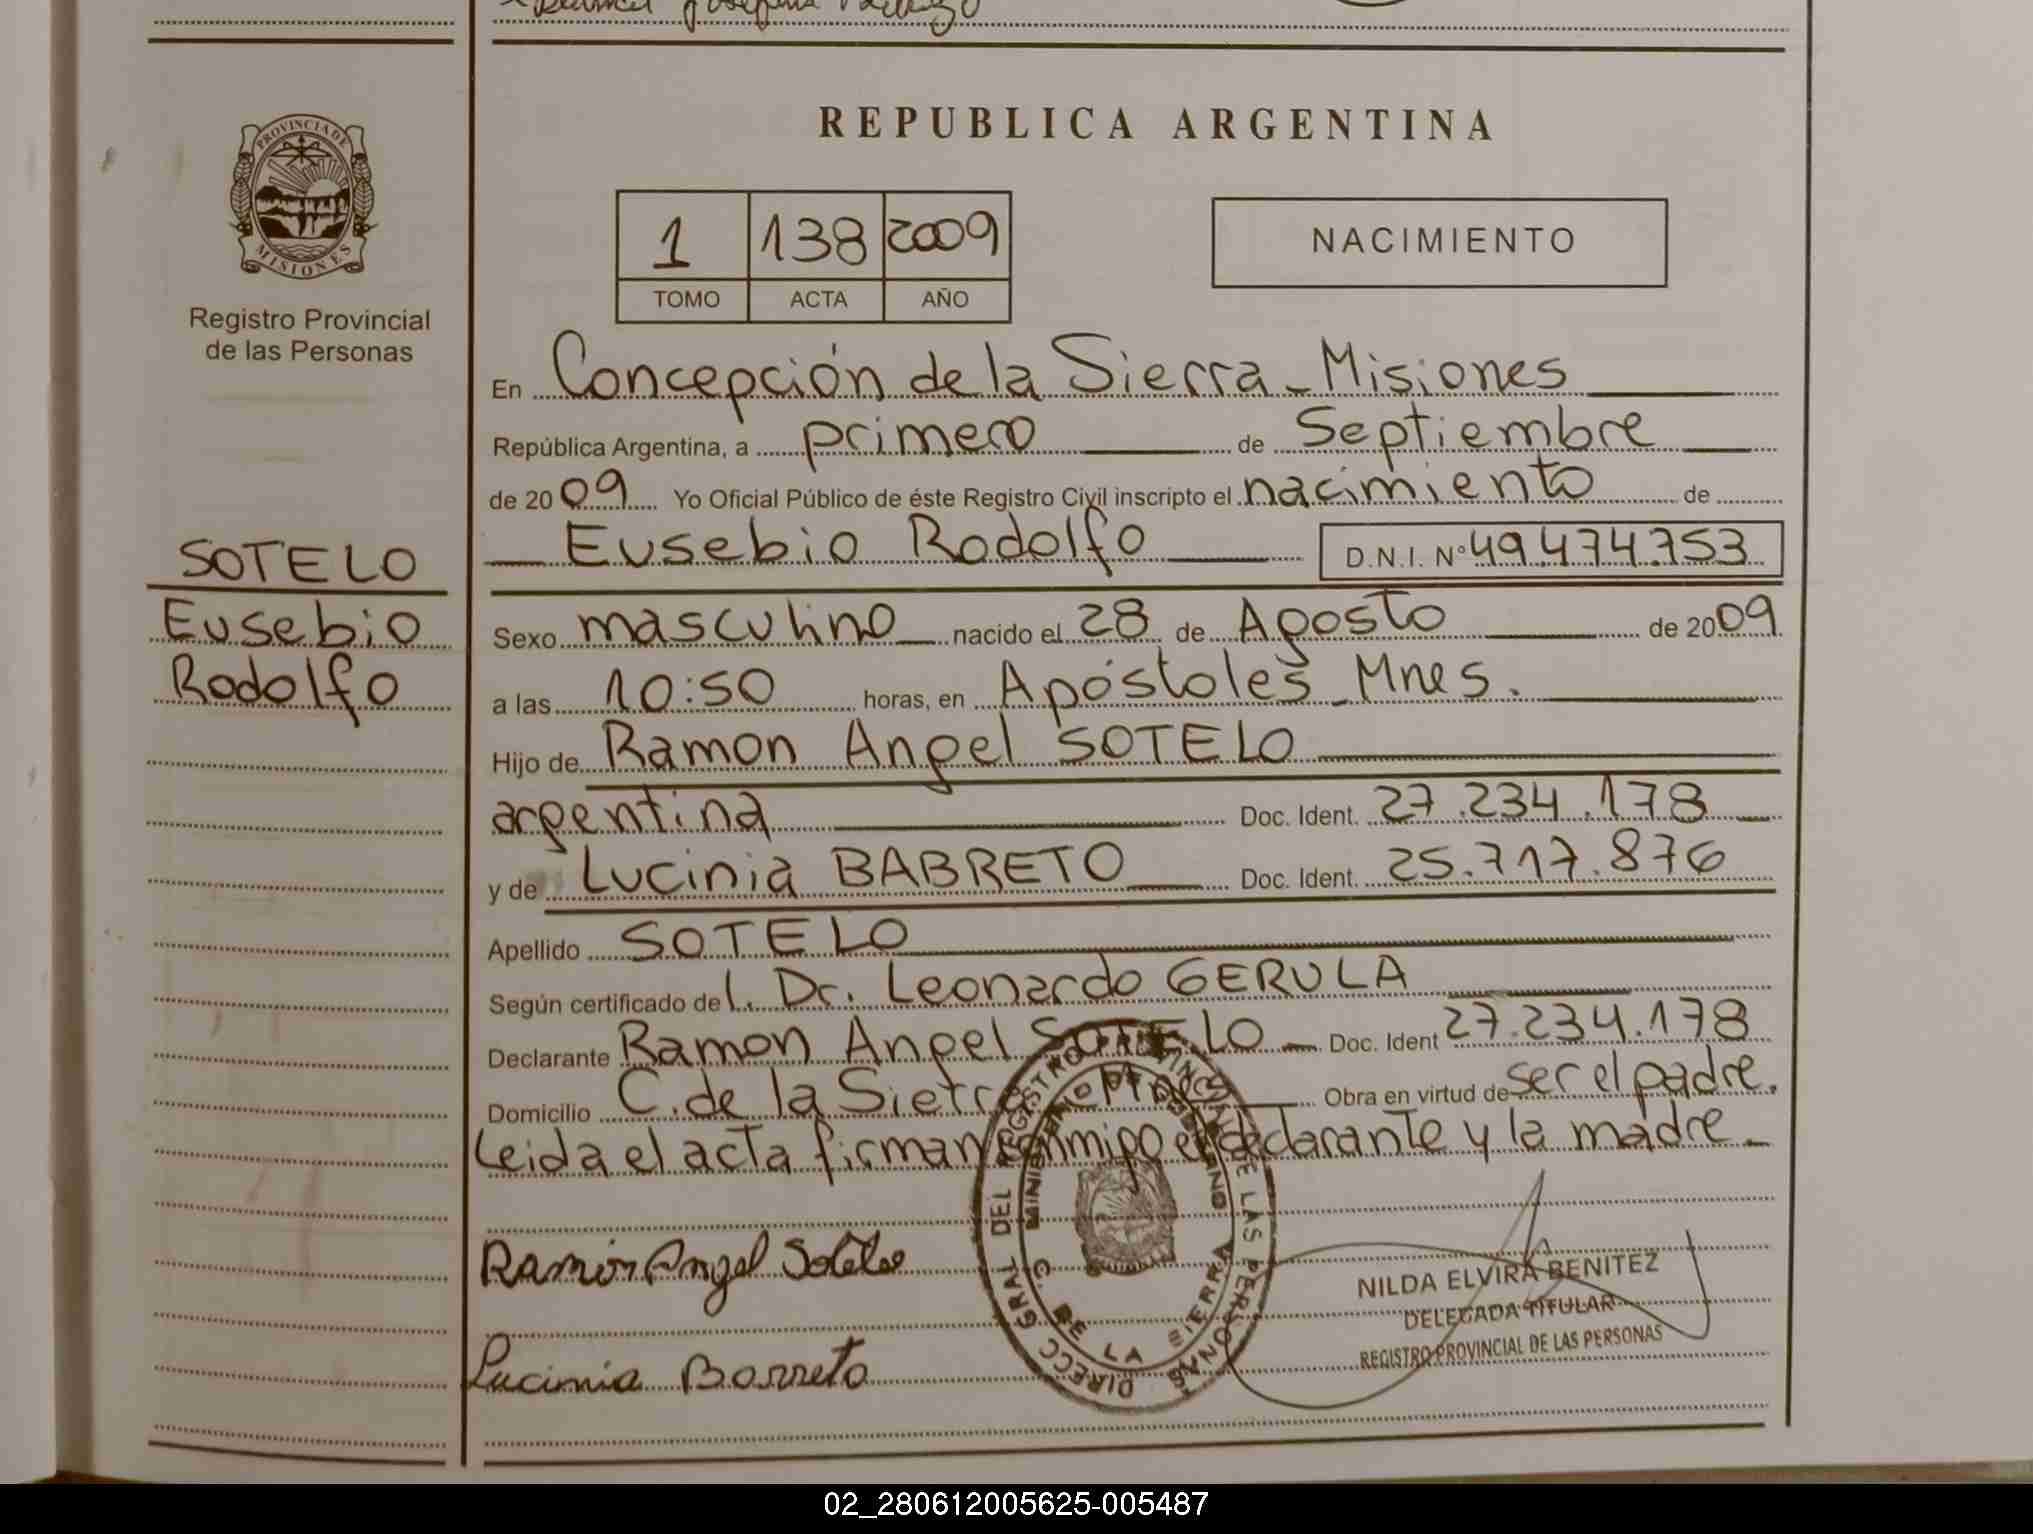 REPUBLICA ARGENTINA
PROVINCIA DE
MISIONES
Registro Provincial
de las Personas
1 138 2009
TOMO ACTA AÑO
NACIMIENTO
En Concepción de la Sierra - Misiones
República Argentina, a primero de Septiembre
de 2009 Yo Oficial Público de éste Registro Civil inscripto el nacimiento de
Eusebio Rodolfo D.N.I. Nº 49.474.753
SOTELO
Eusebio
Rodolfo
Sexo masculino nacido el 28 de Agosto de 2009
a las 10:50 horas, en Apóstoles - Mnes.
Hijo de Ramon Angel SOTELO
argentina Doc. Ident. 27.234.178
y de Lucinia BABRETO Doc. Ident. 25.717.876
Apellido SOTELO
Según certificado del. Dr. Leonardo GERULA
Declarante Ramon Angel SOTELO - Doc. Ident 27.234.178
Domicilio C. de la Sierra - Mnes Obra en virtud de ser el padre.
Leida el acta firman conmigo el declarante y la madre -
Ramón Angel Sotelo
Lucinia Barreto
DIRECC GRAL DEL REGISTRO PROVINCIAL DE LAS PERSONAS
MINISTERIO DE GOBIERNO
C. DE LA SIERRA
NILDA ELVIRA BENITEZ
DELEGADA TITULAR
REGISTRO PROVINCIAL DE LAS PERSONAS
02_280612005625-005487